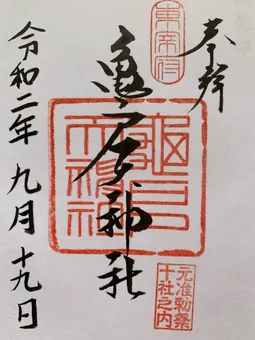 奉拝
東宰府
亀戸天神社
龜戸
元准勅祭
十社之内
令和二年九月十九日